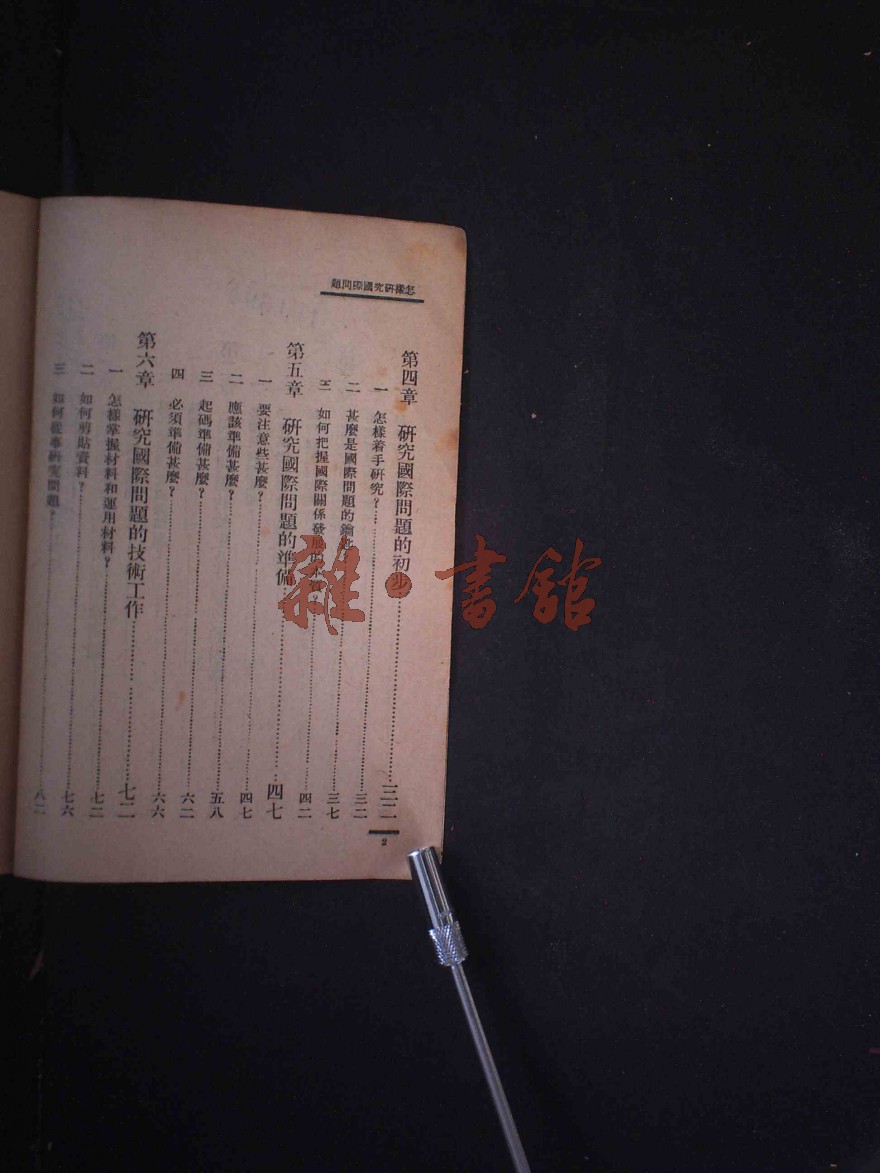 怎樣研究國際問題
第四章 研究國際問題的初步 三二
一 怎樣着手研究？ 三二
二 甚麼是國際問題的鑰匙 三七
三 如何把握國際關係發展的 四二
第五章 研究國際問題的準備 四七
一 要注意些甚麼？ 四七
二 應該準備甚麼？ 五八
三 起碼準備甚麼？ 六二
四 必須準備甚麼？ 六六
第六章 研究國際問題的技術工作 七二
一 怎樣掌握材料和運用材料？ 七二
二 如何剪貼資料？ 七六
三 如何從事研究問題？ 八二
2
雜·書館